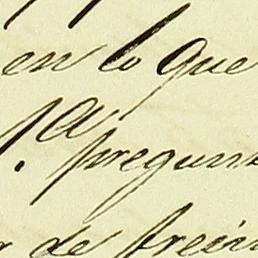 en lo que
1.ª pregunt
de trein